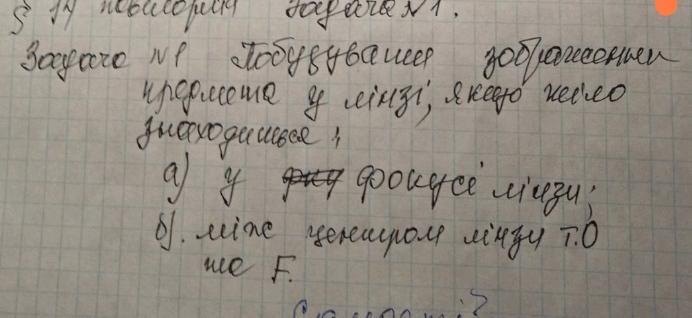 § 14 повторити задача №1.
Задача №1 Побудувати зображення
предмета у лінзі, якщо тіло
знаходиться:
а) у фокусі лінзи;
б). між центром лінзи т.О
та F.